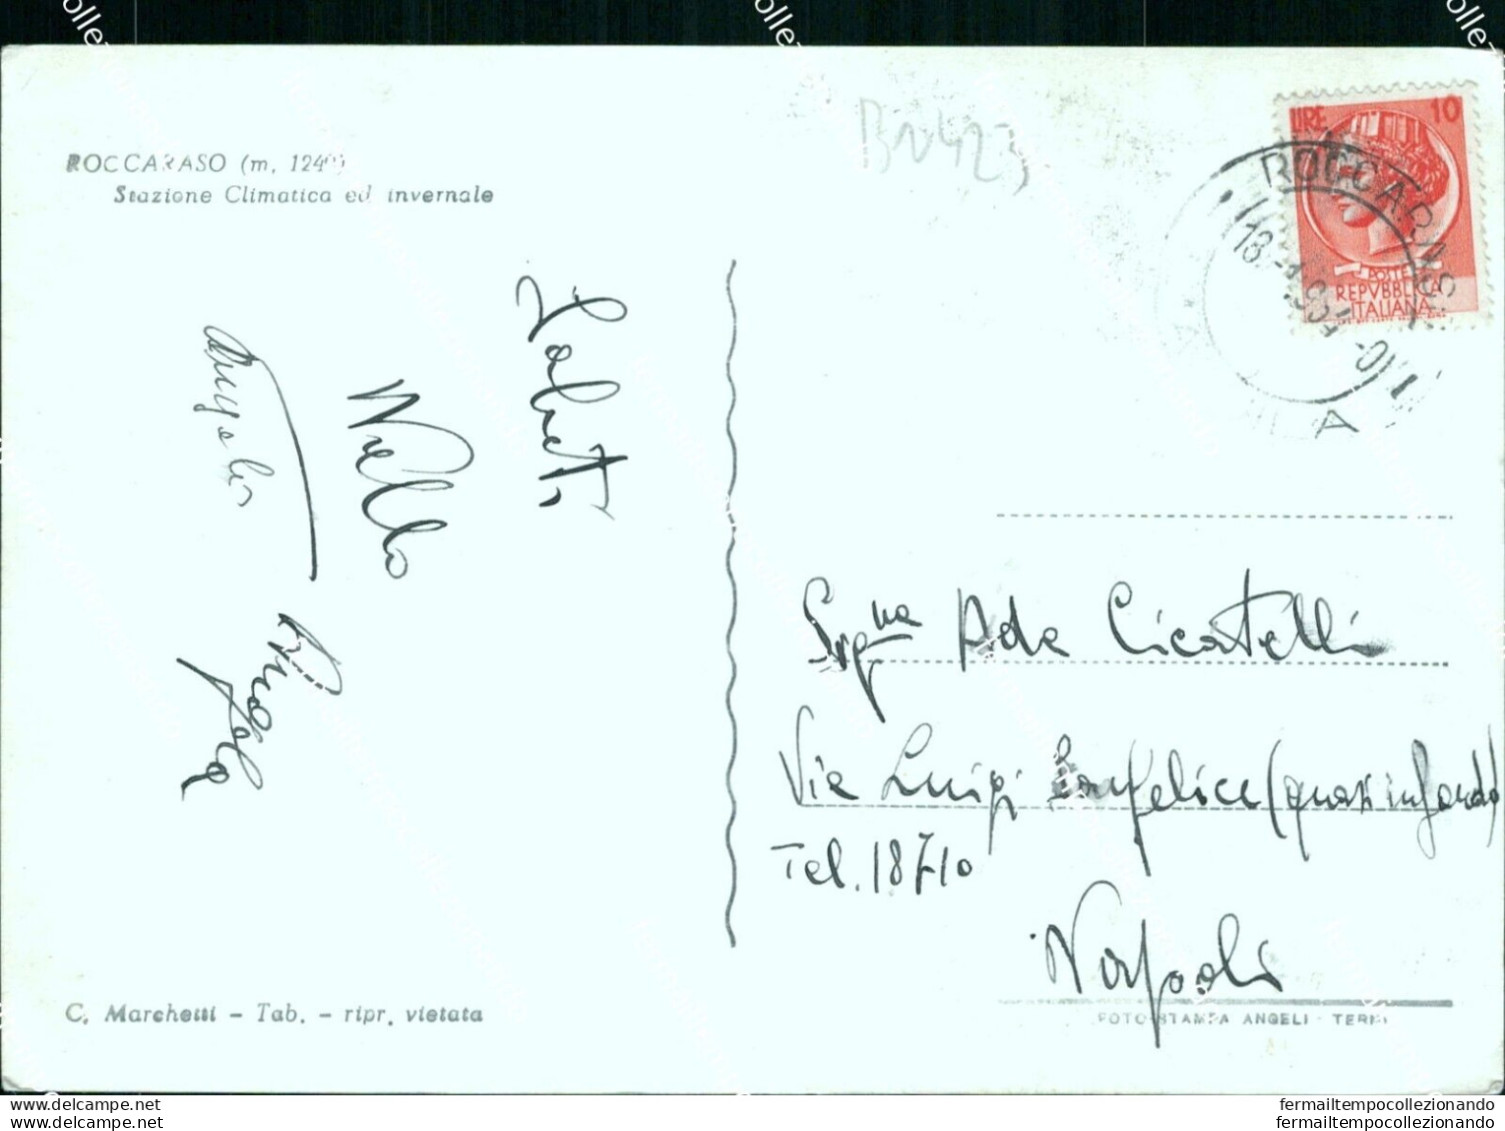 ROCCARASO (m. 124
Stazione Climatica ed invernale
BN423
LIRE 10
POSTE
REPVBBLICA
ITALIANA
ROCCARASO
Saluti
Nello
Angela
Sig.na Ada Cicatelli
Via Luigi Sanfelice (quasi in fondo)
Tel. 18710
Napoli
C. Marchetti - Tab. - ripr. vietata
FOTO-STAMPA ANGELI - TERNI
www.delcampe.net
fermailtempocollezionando
fermailtempocollezionando